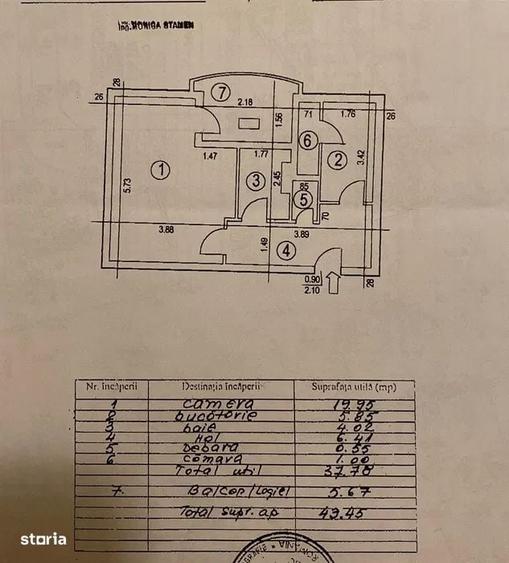 Ing. MONICA STAMEN
28
26
7
2.18
1.56
71
1.76
26
6
1.47
1.77
2
3.42
1
5.73
3
2.45
85
5
70
3.88
1.49
4
3.89
0.90
2.10
28
Nr. încăperii Destinația încăperii Suprafața utilă (mp)
1 camera 19.95
2 bucătorie 5.85
3 baie 4.02
4 Hol 6.41
5 Debara 0.55
6 Cămara 1.00
Total util 37.78
7. Balcon/logie 5.67
Total supr. ap 43.45
ROMANIA
storia